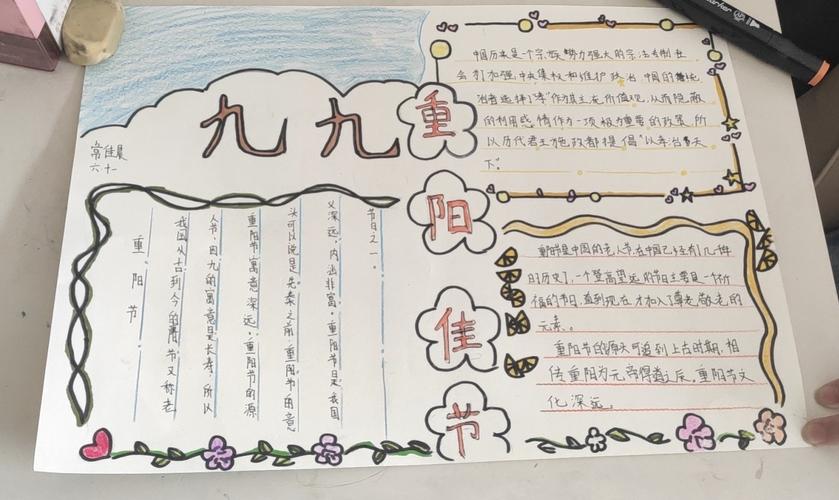 九九重阳佳节
常佳晨
六十一
中国历来是一个宗族势力强大的宗法专制社
会为了加强中央集权和维护政治,中国的统
治者选择了"孝"作为其主流价值观,从而隐蔽
的利用感情作为一项极为重要的政策,所
以历代君主施政都提倡"以孝治天
下"。
重阳节
我国从古到今的重阳节又称老
人节,因九的寓意是长寿,所以
重阳节寓意深远。重阳节的源
头可以说是先秦之前,重阳节的意
义深远,内涵非富。重阳节日是我国
节日之一。
重阳是中国的老人节,在中国已经有几千年
的历史了,一个登高望远的节日主要是一个祈
福的节日,直到现在才加入了尊老、敬老的
元素。
重阳节的源头可追到上古时期,相
传重阳为元帝得道之后,重阳节文
化深远。